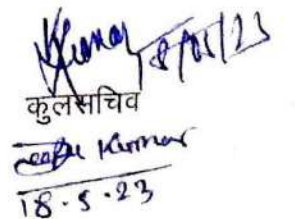 Kumar 18/05/23
कुलसचिव
Kumar
18.5.23